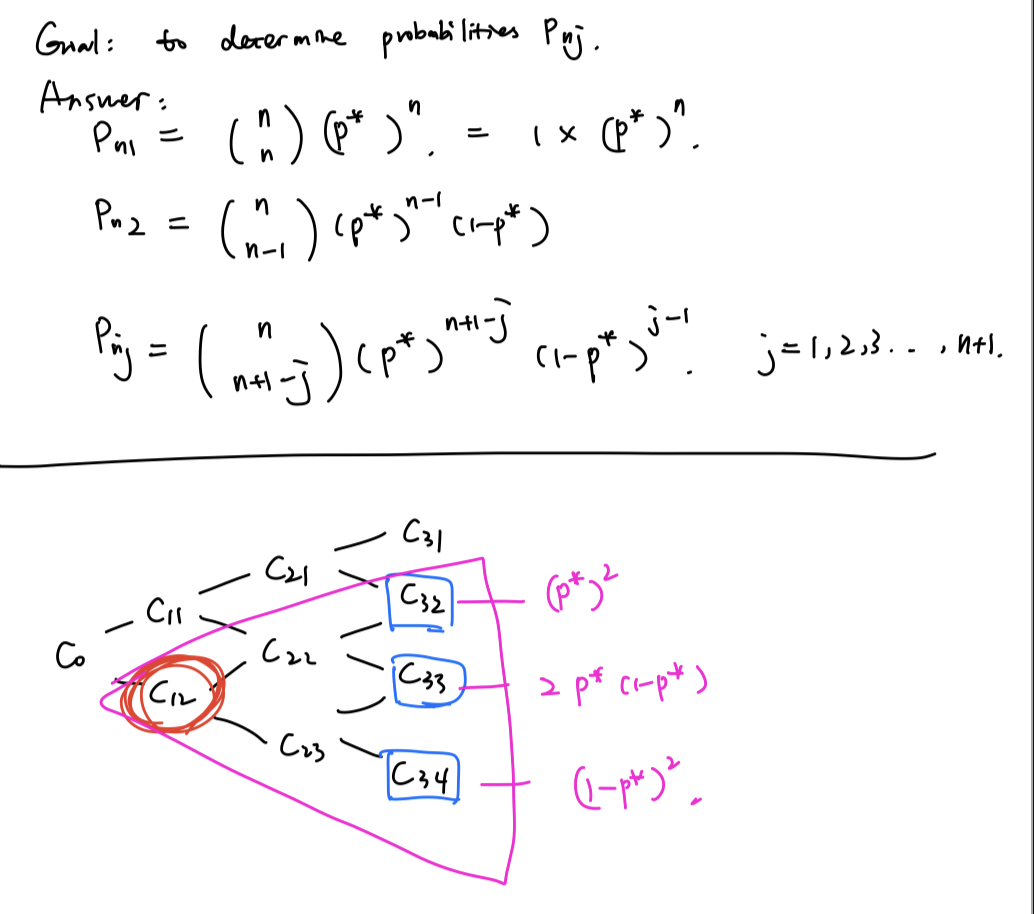 Goal: to determine probabilities Pnj.
Answer:
Pn1 = (n n) (p*)^n. = 1 × (p*)^n.
Pn2 = (n n-1) (p*)^n-1 (1-p*)
Pnj = (n n+1-j) (p*)^n+1-j (1-p*)^j-1. j=1,2,3..., n+1.
C31
C21
C11 C32 (p*)^2
C0 C22
C12 C33 2 p* (1-p*)
C23
C34 (1-p*)^2.